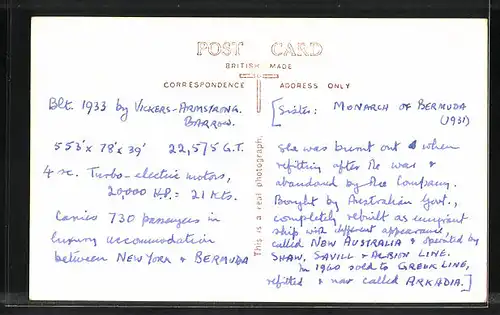 POST CARD
BRITISH MADE
CORRESPONDENCE ADDRESS ONLY
Blt. 1933 by VICKERS-ARMSTRONG.
BARROW.
553'x 78'x 39' 22,575 G.T.
4 sc. Turbo-electric motors,
20,000 H.P. = 21 Kts.
Carries 730 passengers in
luxury accommodation
between NEW YORK & BERMUDA
This is a real photograph.
[Sister: MONARCH OF BERMUDA
(1931)
She was burnt out when
refitting after the war &
abandoned by the Company.
Bought by Australian Govt.,
completely rebuilt as emigrant
ship with different appearance,
called NEW AUSTRALIA & operated by
SHAW, SAVILL & ALBION LINE.
In 1960 sold to GREEK LINE,
refitted & now called ARKADIA.]